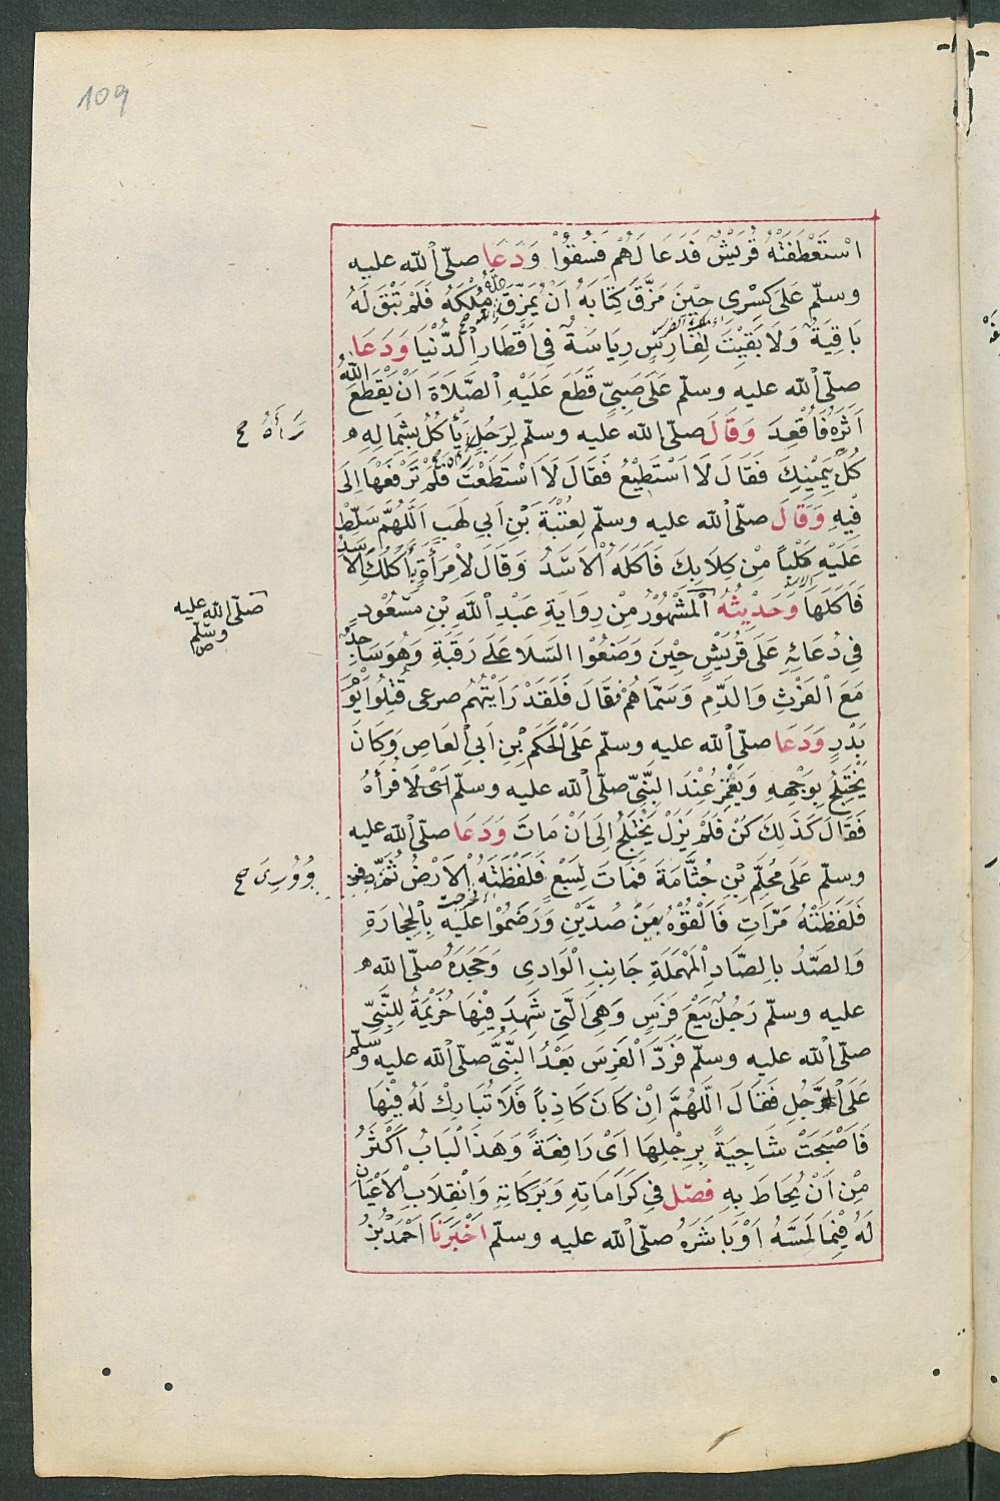 109
اسْتَعْطَفَتْهُ قُرَيْشٌ فَدَعَا لَهُمْ فَسُقُوْا وَدَعَا صلّى الله عليه
وسلّم عَلَى كِسْرى حِيْنَ مَزَّقَ كِتَابَهُ اَنْ يُمَزِّقَ اللهُ مُلْكَهُ فَلَمْ تَبْقَ لَهُ
بَاقِيَةٌ وَلَا بَقِيَتْ لِفَارِسٍ رِيَاسَةٌ فِى اَقْطَارِ الدُّنْيَا وَدَعَا
صلّى الله عليه وسلّم عَلَى صَبِىٍّ قَطَعَ عَلَيْهِ الصَّلَاةَ اَنْ يَقْطَعَ اللهُ
اَثَرَهُ فَاُقْعِدَ وَقَالَ صلّى الله عليه وسلّم لِرَجُلٍ يَأْكُلُ بِشِمَالِهِ
رَأَهُ صح
كُلْ بِيَمِيْنِكَ فَقَالَ لَا اَسْتَطِيْعُ فَقَالَ لَا اَسْتَطَعْتَ فَلَمْ تَرْفَعْهَا اِلَى
فِيْهِ وَقَالَ صلّى الله عليه وسلّم لِعُتْبَةَ بْنِ اَبِي لَهَبٍ اَللّهُمَّ سَلِّطْ
عَلَيْهِ كَلْباً مِنْ كِلَابِكَ فَاَكَلَهُ الْاَسَدُ وَقَالَ لاِمْرَأَةٍ يَأْكُلُكِ الْاَسَدُ
فَاَكَلَهَا وَحَدِيْثُهُ الْمَشْهُوْرُ مِنْ رِوَايَةِ عَبْدِ اللهِ بْنِ مَسْعُوْدٍ
صلّى الله عليه
وسلّم
فِى دُعَائِهِ عَلَى قُرَيْشٍ حِيْنَ وَضَعُوْا السَلَا عَلَى رَقَبَةِ وَهُوَ سَاجِدٌ
مَعَ الْفَرْثِ وَالدَّمِ وَسَمَّاهُمْ فقَالَ فَلَقَدْ رَاَيْتُهُم صرعى قُتِلُوا يَوْمَ
بَدْرٍ وَدَعَا صلّى الله عليه وسلّم عَلَى الْحَكَمِ بْنِ اَبِى الْعَاصِ وَكَانَ
يَخْتَلِجُ بِوَجْهِهِ وَيَغْمِزُ عِنْدَ النَّبِىِّ صلّى الله عليه وسلّم اَىْ لَا فَرأهُ
فَقَالَ كَذَلِكَ كُنْ فَلَمْ يَزَلْ يَخْتَلِجُ اِلَى اَنْ مَاتَ وَدَعَا صلّى الله عليه
وسلّم عَلَى مُحَلِّمِ بْنِ جُثَّامَةَ فَمَاتَ لِسَبْعٍ فَلَفَظَتْهُ الْاَرْضُ ثُمَّ
وُوْرِىَ صح
فَلَفَظَتْهُ مَرَّاتٍ فَاَلْقُوْهُ بَيْنَ صُدَّيْنِ وَرَضَمُوْا عَلَيْهِ بِالْحِجَارَةِ
وَالصَّدُّ بالصَّادِ الْمُهْمَلَةِ جَانِبِ الْوَادِى وَجَحَدَهُ صلّى الله
عليه وسلّم رَجُلٌ بَيْعَ فَرَسٍ وَهِىَ الَّتِى شَهِدَ فِيْهَا خُزَيْمَةُ لِلنَّبِىِّ
صلّى الله عليه وسلّم فَرَدَّ الْفَرَسَ بَعْدُ النَّبِىُّ صلّى الله عليه وسلّم
عَلَى الرَّجُلِ فَقَالَ اللّهُمَّ اِنْ كَانَ كَاذِباً فَلَا تُبَارِكْ لَهُ فِيْهَا
فَاَصْبَحَتْ شَاجِيَةً بِرِجْلِهَا اَىْ رَافِعَةً وَهَذَا الْبَابُ اَكْثَرُ
مِنْ اَنْ يُحَاطَ بِهِ فصّل فِي كَرَامَاتِهِ وَبَرَكَاتِهِ وَانْقِلَابِ الْاَعْيَانِ
لَهُ فِيْمَا لَمَسَهُ اَوْ بَاشَرَهُ صلّى الله عليه وسلّم اَخْبَرَنَا اَحْمَدُ بْنُ